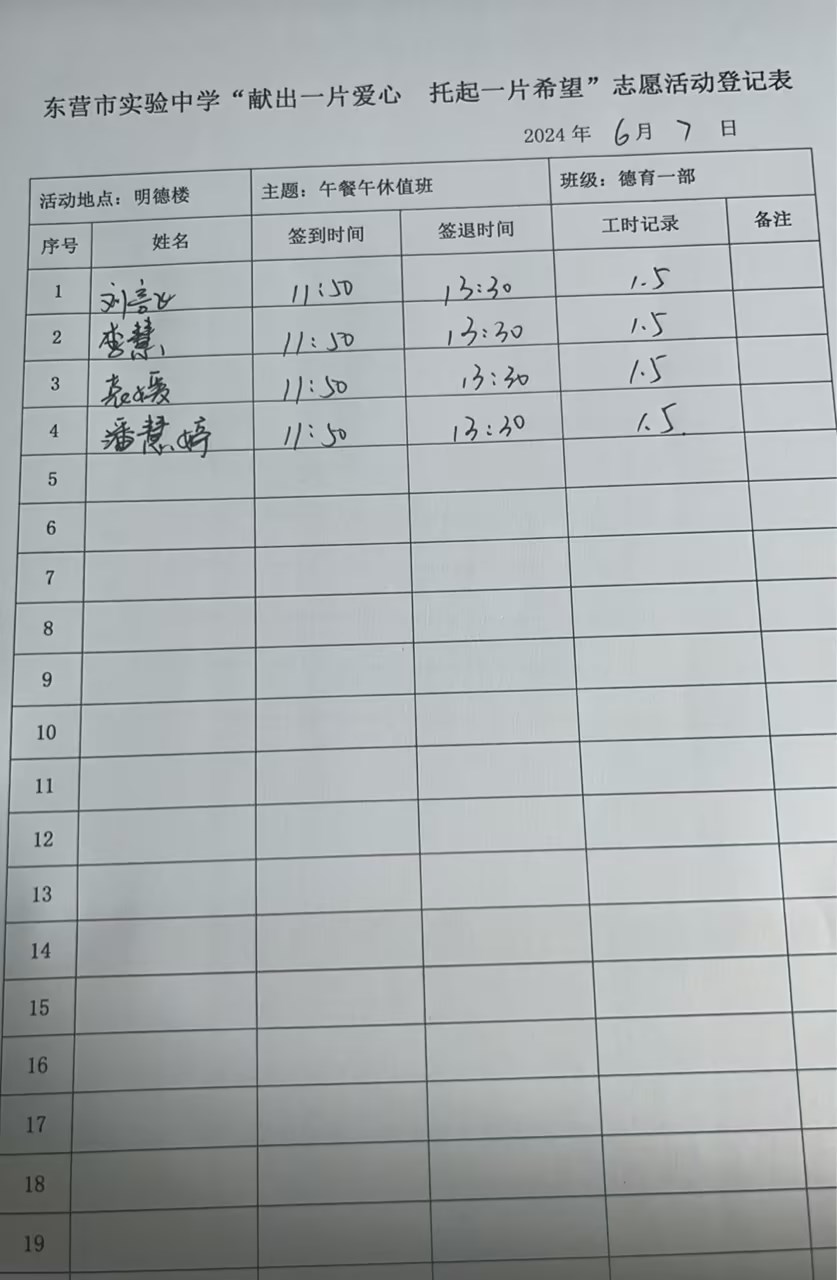 东营市实验中学“献出一片爱心 托起一片希望”志愿活动登记表
2024 年 6月 7 日
活动地点：明德楼 主题：午餐午休值班 班级：德育一部
序号 姓名 签到时间 签退时间 工时记录 备注
1 刘 11:50 13:30 1.5
2 李慧 11:50 13:30 1.5
3 袁媛 11:50 13:30 1.5
4 潘慧婷 11:50 13:30 1.5
5
6
7
8
9
10
11
12
13
14
15
16
17
18
19